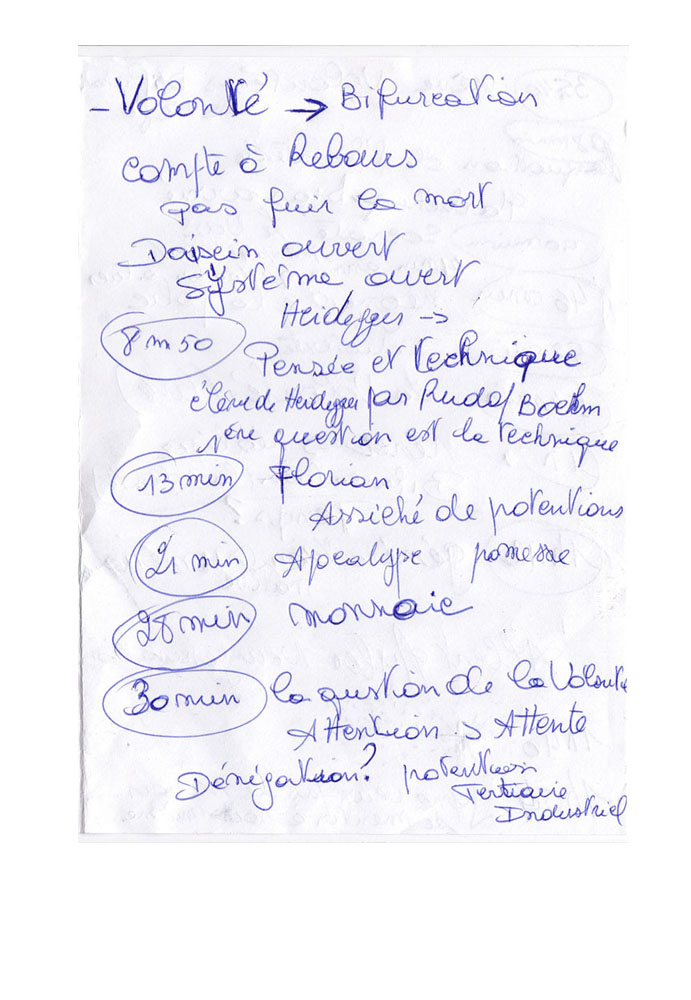 - Volonté → Bifurcation
compte à Rebours
pas fuir la mort
Daisein ouvert
Système ouvert
Heidegger →
8 m 50
Pensée et technique
élève de Heidegger par Rudolf Boehm
1ère question est la technique
13 min Florian
de potentions
21 min Apocalypse promesse
28 min monnaie
30 min la question de la Volonté
Attention → Attente
Dénégation? potention
Tertiaire
Industriel